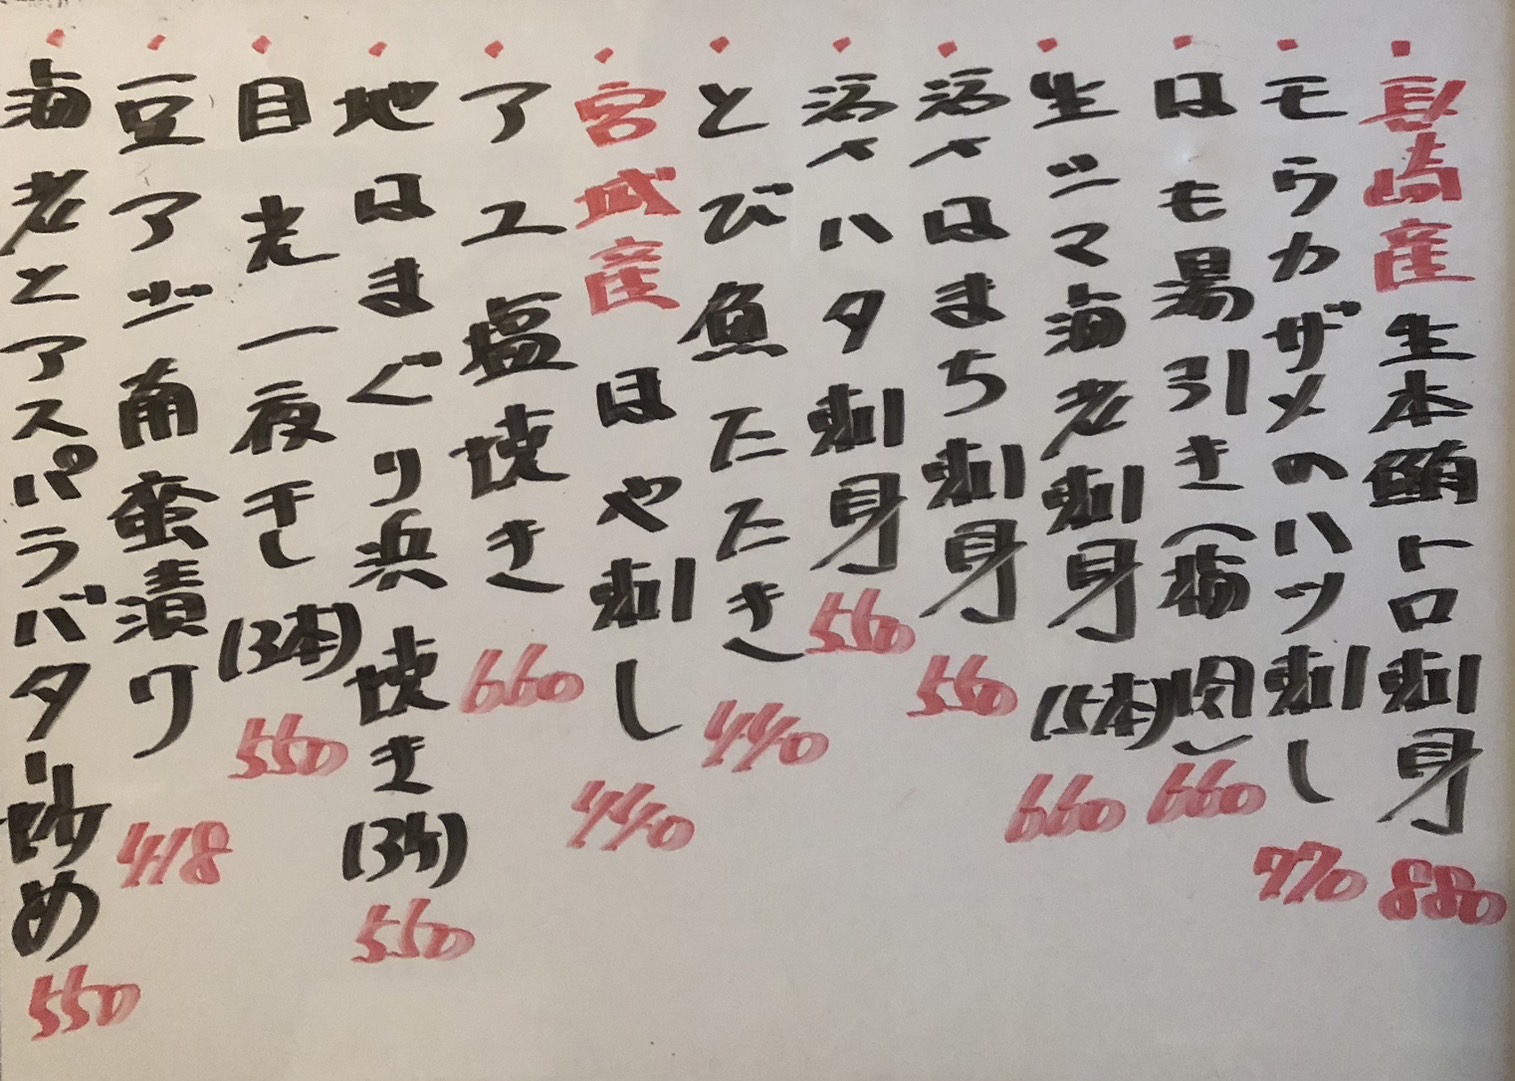 長崎産 生本鮪トロ刺身 880
モウカザメのハツ刺し 770
はも湯引き(梅肉) 660
生シマ海老刺身(5本) 660
活〆はまち刺身 550
活〆ハタ刺身 560
とび魚たたき 440
宮城産 ほや刺し 440
アユ塩焼き 660
地はまぐり浜焼き(3ケ) 550
目光一夜干し(3本) 550
豆アジ南蛮漬け 418
海老とアスパラバター炒め 550